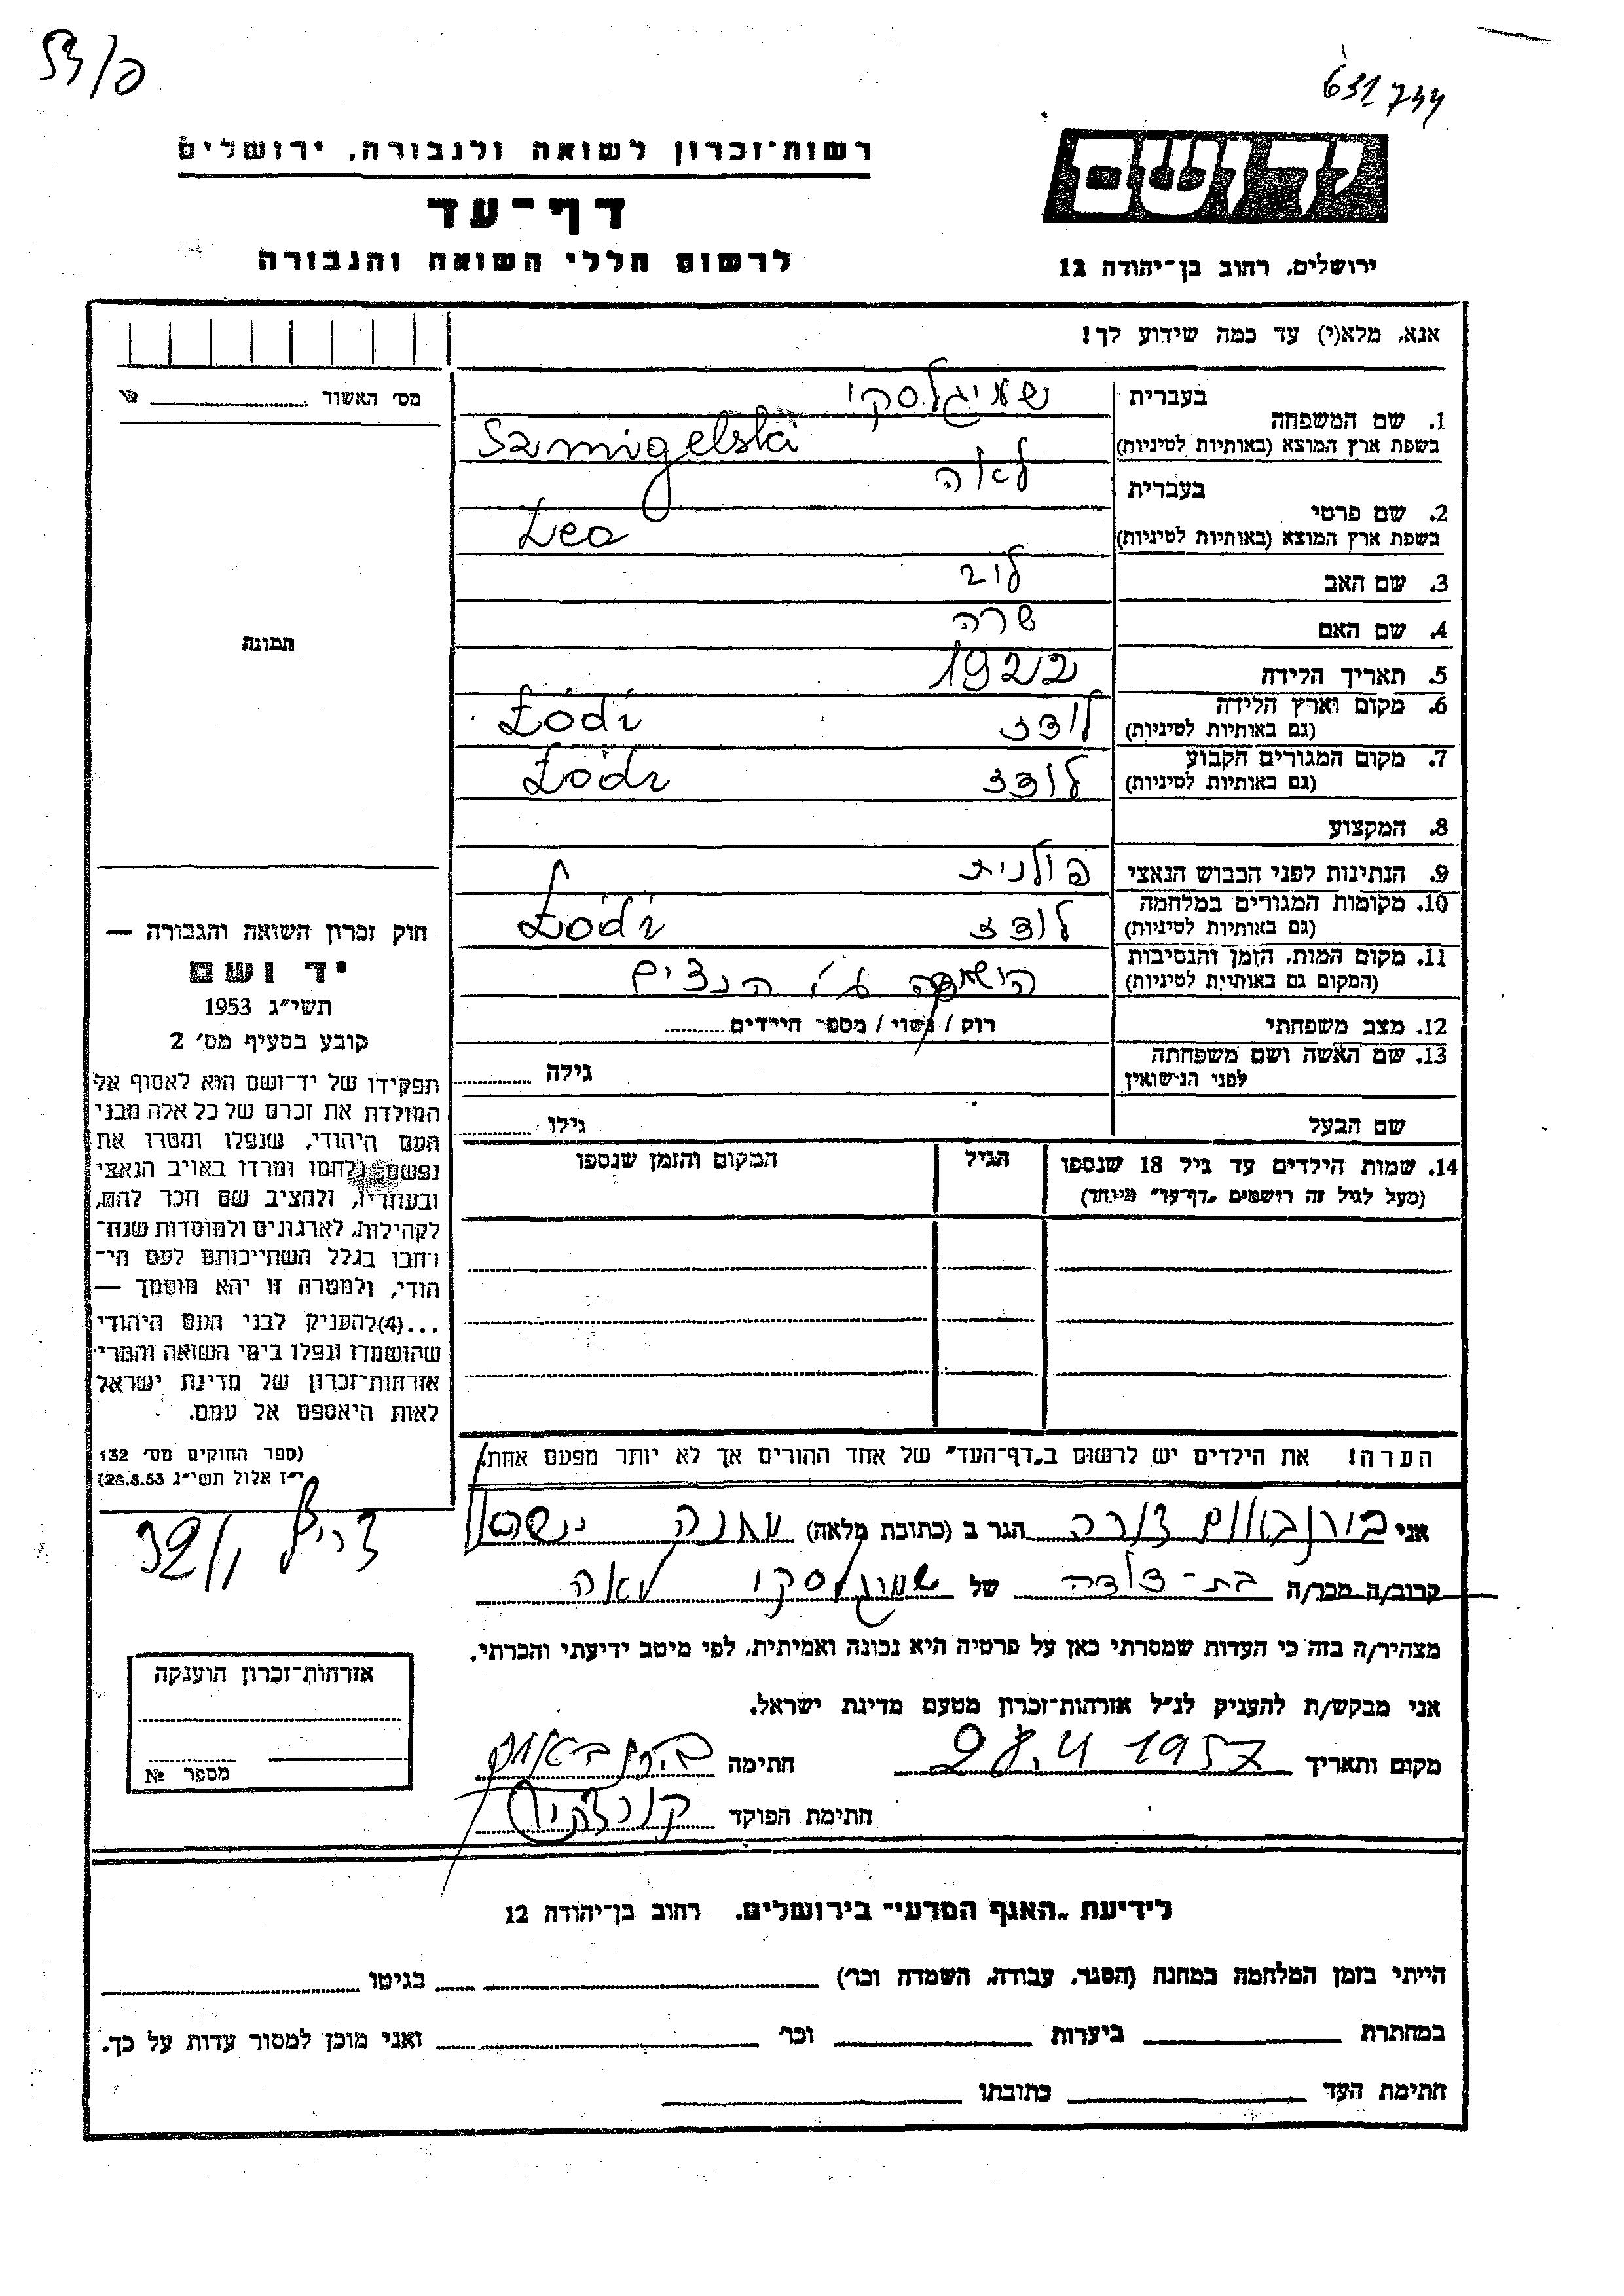 631744
רשות־זכרון לשואה ולגבורה, ירושלים
דף־עד
לרשום חללי השואה והגבורה
ידושם
ירושלים, רחוב בן־יהודה 12
אנא, מלא(י) עד כמה שידוע לך!
מס' האשור
1. שם המשפחה בעברית שמיגלסקי
בשפת ארץ המוצא (באותיות לטיניות) Szmigelski
2. שם פרטי בעברית לאה
בשפת ארץ המוצא (באותיות לטיניות) Lea
3. שם האב לוב
4. שם האם שרה
5. תאריך הלידה 1922
6. מקום וארץ הלידה (גם באותיות לטיניות) לודז Łódź
7. מקום המגורים הקבוע (גם באותיות לטיניות) לודז Łódź
8. המקצוע
9. הנתינות לפני הכבוש הנאצי פולנית
10. מקומות המגורים במלחמה (גם באותיות לטיניות) לודז Łódź
11. מקום המות, הזמן והנסיבות (המקום גם באותיות לטיניות) הושמדה ע"י הנצים
12. מצב משפחתי רוק / נשוי / מספר הילדים
13. שם האשה ושם משפחתה לפני הנישואין גילה
שם הבעל גילו
14. שמות הילדים עד גיל 18 שנספו הגיל המקום והזמן שנספו
(מעל לגיל זה רושמים „דף־עד" מיוחד)
תמונה
חוק זכרון השואה והגבורה —
יד ושם
תשי"ג 1953
קובע בסעיף מס' 2
תפקידו של יד־ושם הוא לאסוף אל
המולדת את זכרם של כל אלה מבני
העם היהודי, שנפלו ומסרו את
נפשם, נלחמו ומרדו באויב הנאצי
ובעוזריו, ולהציב שם וזכר להם,
לקהילות, לארגונים ולמוסדות שנח־
רבו בגלל השתייכותם לעם הי־
הודי, ולמטרה זו יהא מוסמך —
...(4)להעניק לבני העם היהודי
שהושמדו ונפלו בימי השואה והמרי
אזרחות־זכרון של מדינת ישראל
לאות היאספם אל עמם.
(ספר החוקים מס' 132
י"ז אלול תשי"ג 28.8.53)
הערה! את הילדים יש לרשום ב„דף־העד" של אחד ההורים אך לא יותר מפעם אחת.
אני בורנבוים דורה הגר ב (כתובת מלאה)
קרוב/ה מכר/ה בת־דודה של שמיגלסקי לאה
מצהיר/ה בזה כי העדות שמסרתי כאן על פרטיה היא נכונה ואמיתית, לפי מיטב ידיעתי והכרתי.
אני מבקש/ת להעניק לנ"ל אזרחות־זכרון מטעם מדינת ישראל.
מקום ותאריך 28.4 1957 חתימה
חתימת הפוקד
אזרחות־זכרון הוענקה
מספר №
לידיעת „האגף המדעי" בירושלים, רחוב בן־יהודה 12
הייתי בזמן המלחמה במחנה (הסגר, עבודה, השמדה וכו') בגיטו
במחתרת ביערות וכו' ואני מוכן למסור עדות על כך.
חתימת העד כתובתו